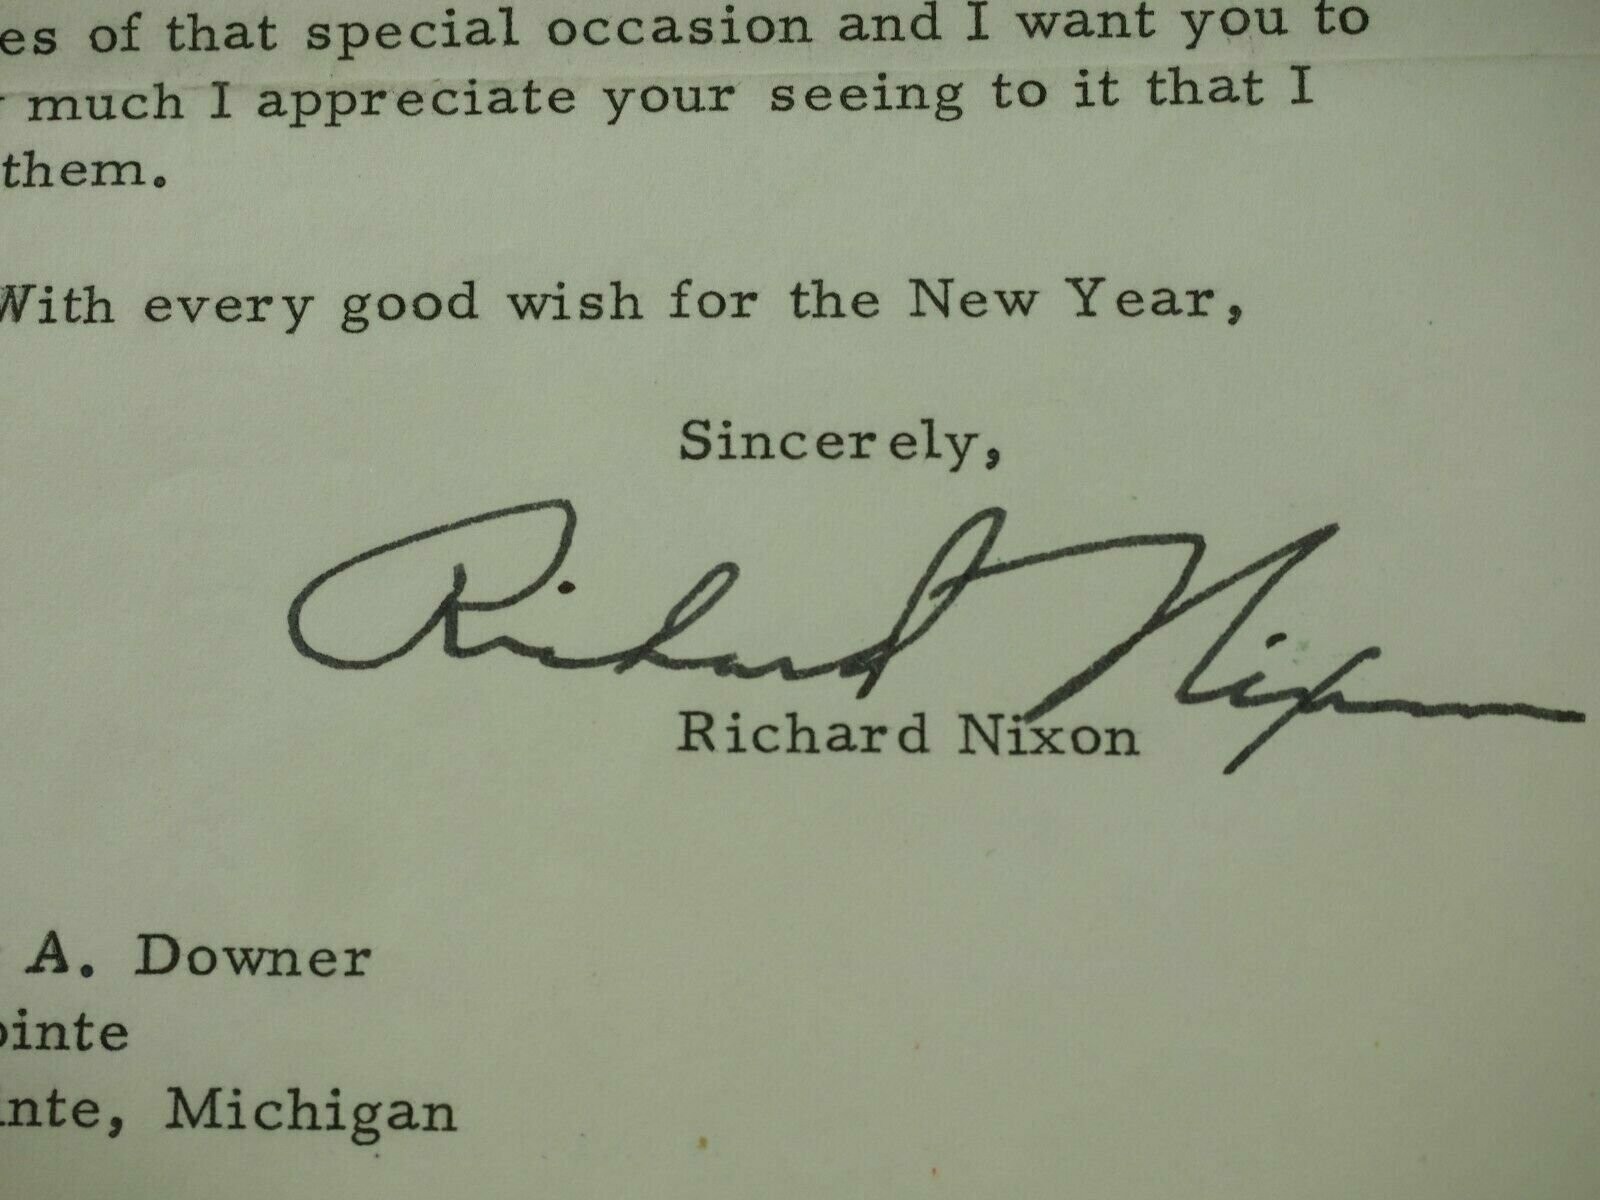 es of that special occasion and I want you to
much I appreciate your seeing to it that I
them.
With every good wish for the New Year,
Sincerely,
Richard Nixon
Richard Nixon
A. Downer
ointe
inte, Michigan